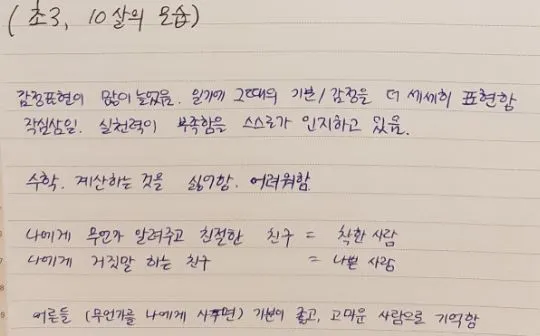 (초3, 10살의 모습)
감정표현이 많이 늘었음. 일기에 그때의 기분/감정을 더 세세히 표현함
작심삼일. 실천력이 부족함을 스스로가 인지하고 있음.
수학. 계산하는 것을 싫어함. 어려워함.
나에게 무언가 알려주고 친절한 친구 = 착한 사람
나에게 거짓말 하는 친구 = 나쁜 사람
어른들 (무언가를 나에게 사주면) 기분이 좋고, 고마운 사람으로 기억함